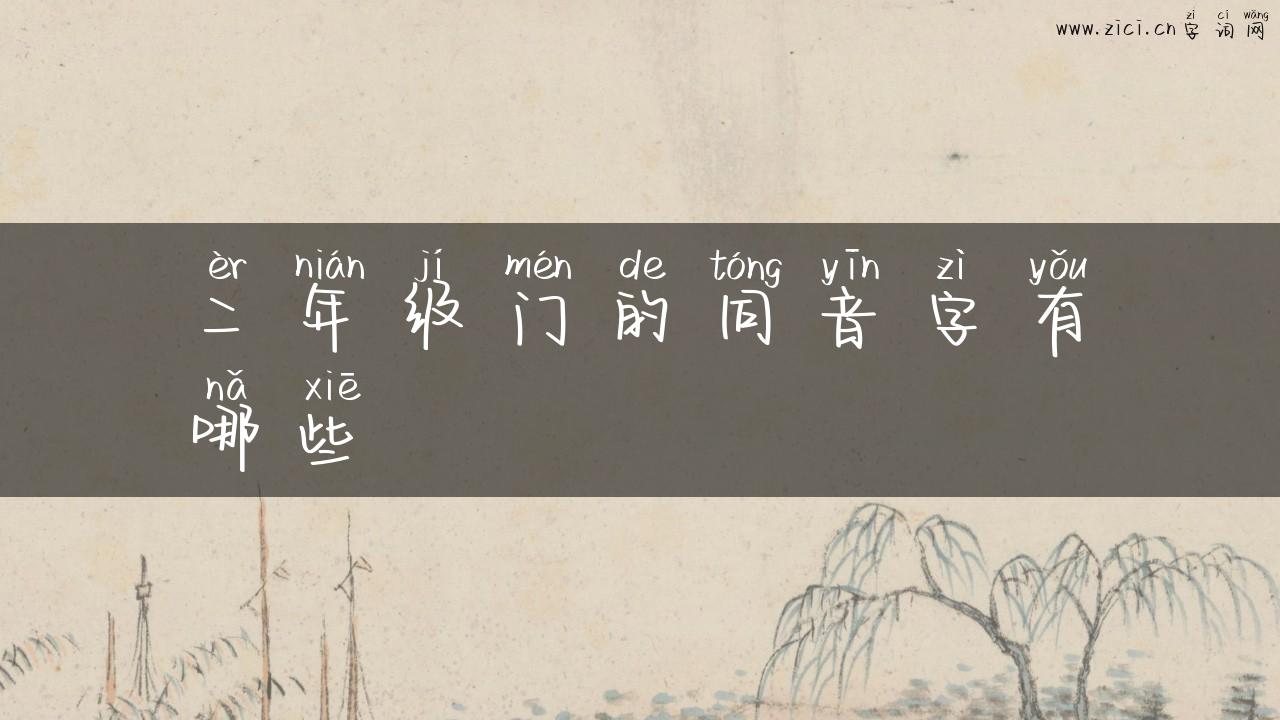 zì cí wǎng
www.zici.cn 字词网
èr nián jí mén de tóng yīn zì yǒu
二年级门的同音字有
nǎ xiē
哪些